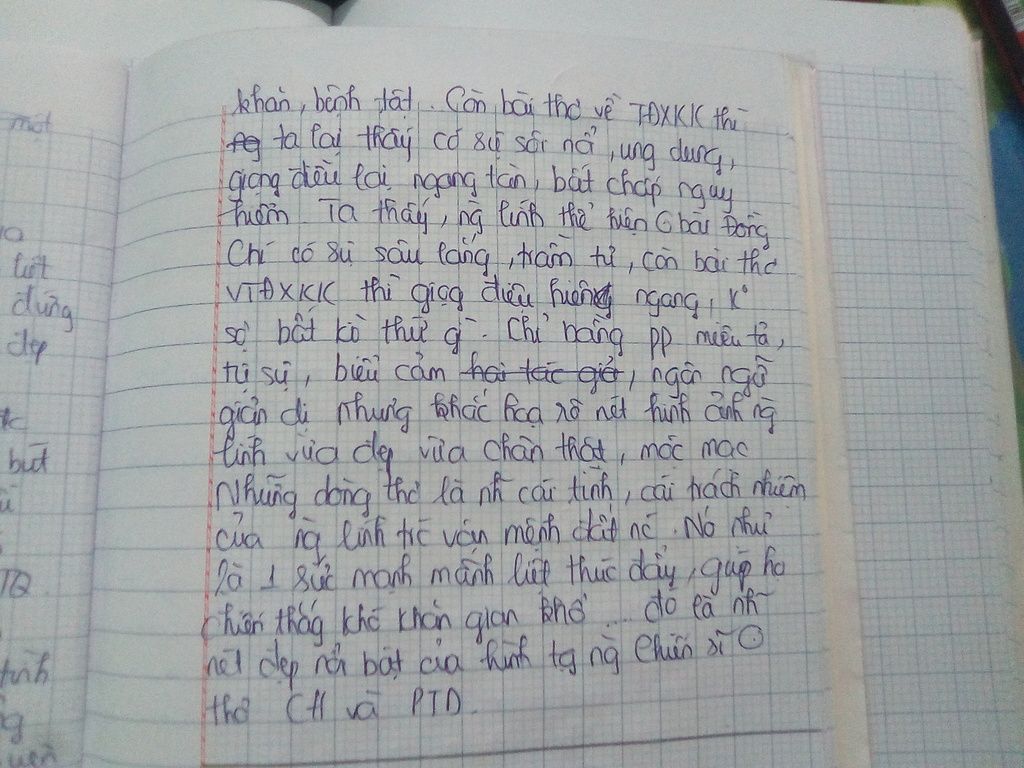 khăn, bệnh tật. Còn bài thơ về TĐXKK thì
ta lại thấy có sự sôi nổ, ung dung,
giọng điệu lại ngang tàn, bất chấp nguy
hiểm. Ta thấy, ng lính thể hiện ở bài Đồng
Chí có sự sâu lắng, trầm tư, còn bài thơ
VTĐXKK thì giọg điệu hiên ngang, K°
sợ bất kì thứ gì. Chỉ bằng pp miêu tả,
tự sự, biểu cảm hai tác giả, ngôn ngữ
giản dị nhưng khắc họa rõ nét hình ảnh ng
lính vừa đẹp vừa chân thật, mộc mạc
Những dòng thơ là nh cái tình, cái trách nhiệm
của ng lính trc vận mệnh đất nc. Nó như
là 1 sức mạnh mãnh liệt thúc đẩy, giúp họ
chiến thắg khó khăn gian khổ ... đó là nh
nét đẹp nổi bật của hình tg ng chiến sĩ
thơ CH và PTD.
một
liệt
dũng
đẹp
bút
TQ
tình